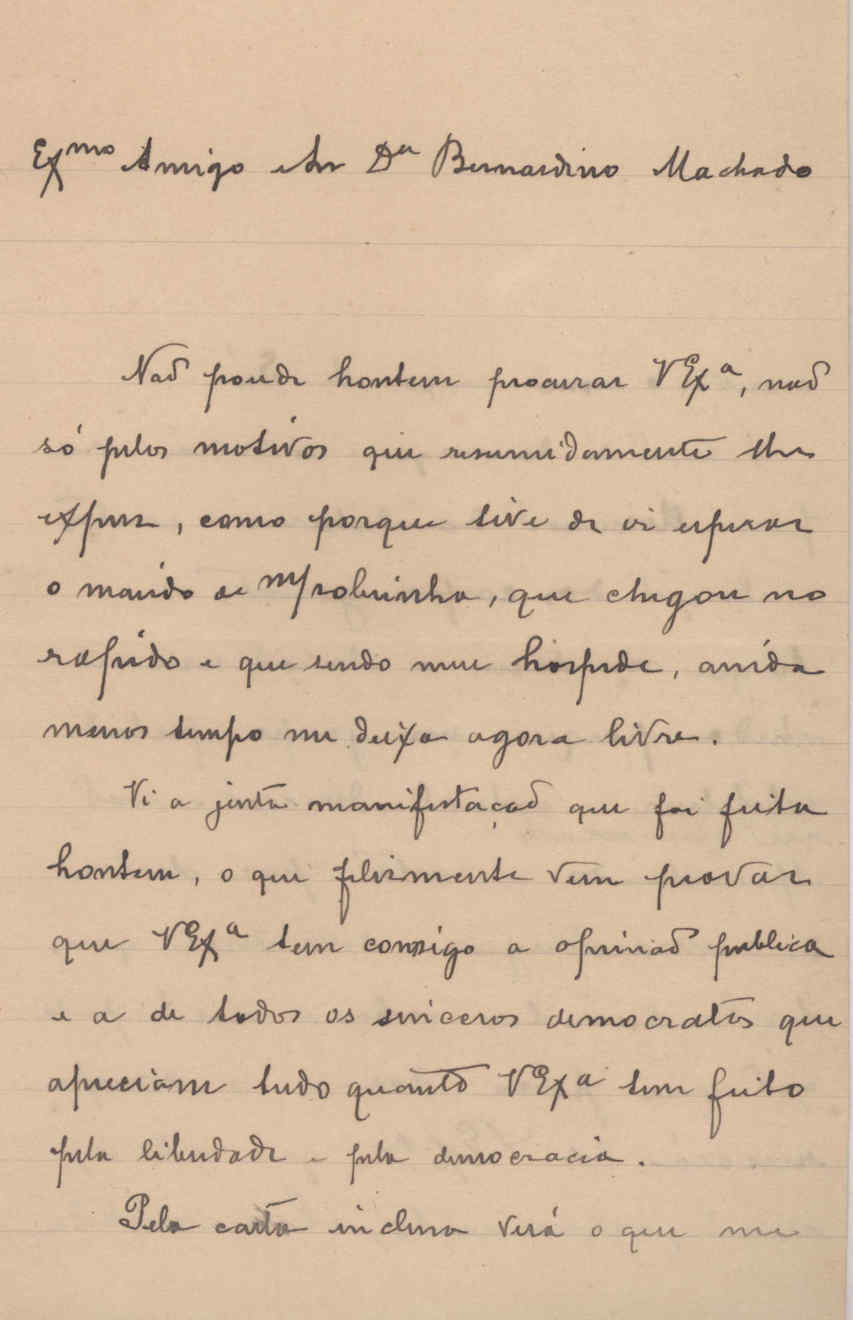 Exmo Amigo e Sr Dr Bernardino Machado
Não poude hontem procurar VExa, não
só pelos motivos que resumidamente lhe
expuz, como porque tive de ir esperar
o marido de m/sobrinha, que chegou no
rapido e que sendo meu hospede, ainda
menos tempo me deixa agora livre.
Vi a justa manifestação que foi feita
hontem, o que felizmente vem provar
que VExa tem comsigo a opinião publica
e a de todos os sinceros democratas que
apreciam tudo quanto VExa tem feito
pela liberdade e pela democracia.
Pela carta inclusa verá o que me